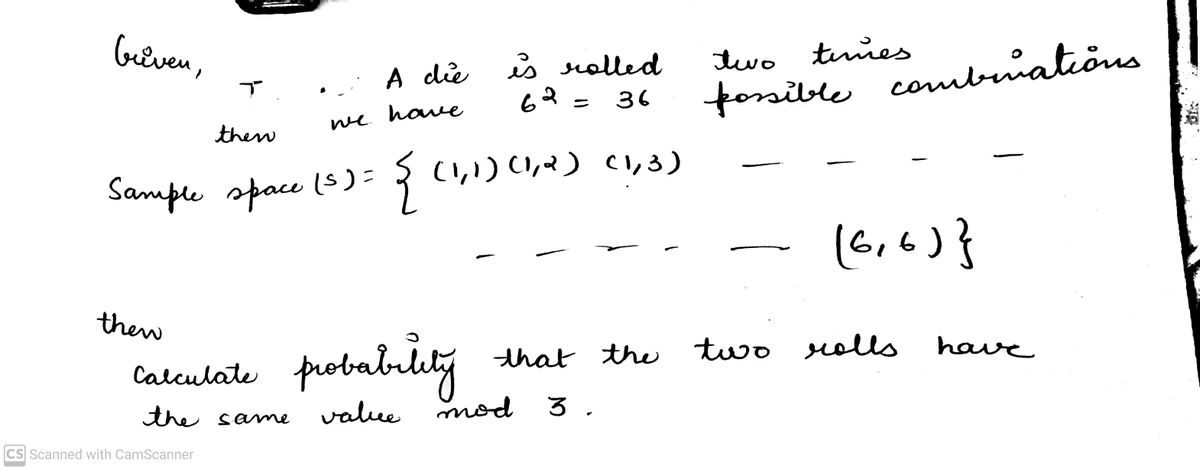 Given,
A die is rolled two times
then we have 6² = 36 possible combinations
Sample space (S) = { (1,1) (1,2) (1,3) — — - —
- — — - — (6,6) }
then
Calculate probability that the two rolls have
the same value mod 3.
CS Scanned with CamScanner